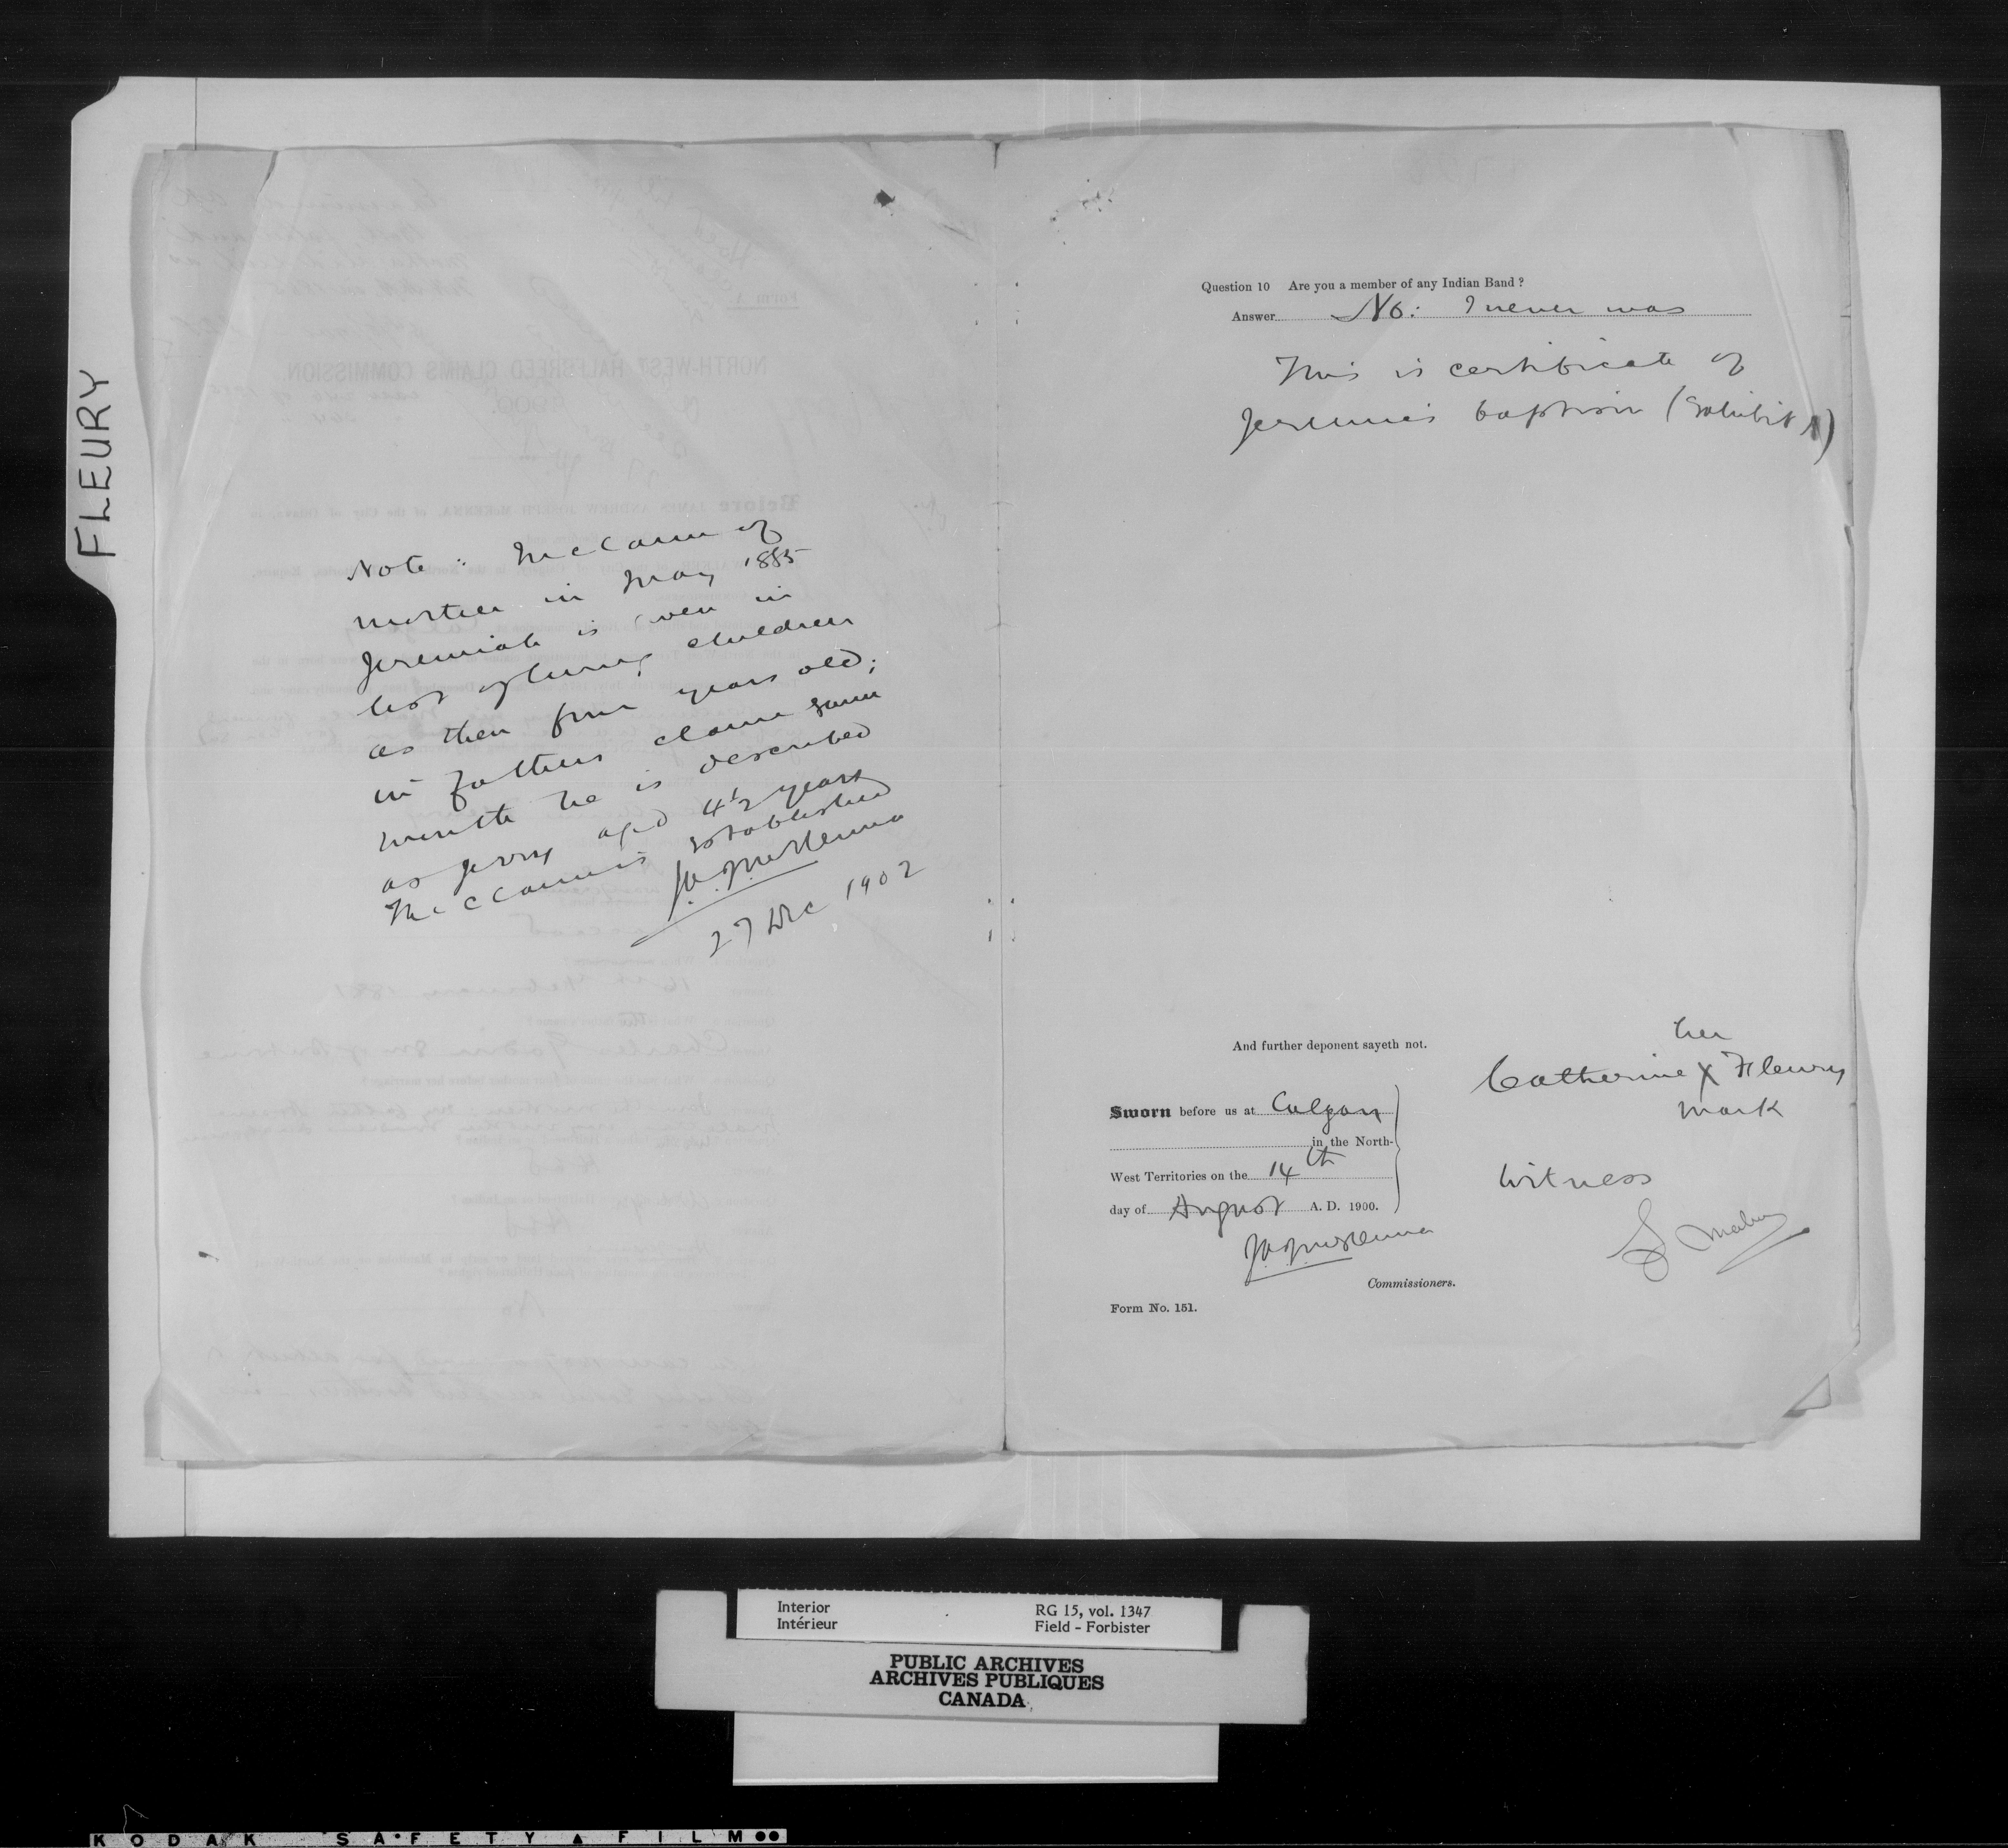 FLEURY
Note: In claim of
mother in May 1885
Jeremiah is given in
list of living children
as then four years old;
in fathers claim same
month he is described
as Jerry aged 4½ years
The claim is established
J.A.J. McKenna
27 Dec 1902
Question 10 Are you a member of any Indian Band?
Answer No: I never was
This is certificate of
Jeremie's baptism (Exhibit A)
And further deponent sayeth not.
her
Catherine X Fleury
mark
Sworn before us at Calgary
in the North-
West Territories on the 14th
day of August A. D. 1900.
Witness
J.A.J. McKenna
Commissioners.
Form No. 151.
Interior
Intérieur
RG 15, vol. 1347
Field - Forbister
PUBLIC ARCHIVES
ARCHIVES PUBLIQUES
CANADA
KODAK SAFETY FILM